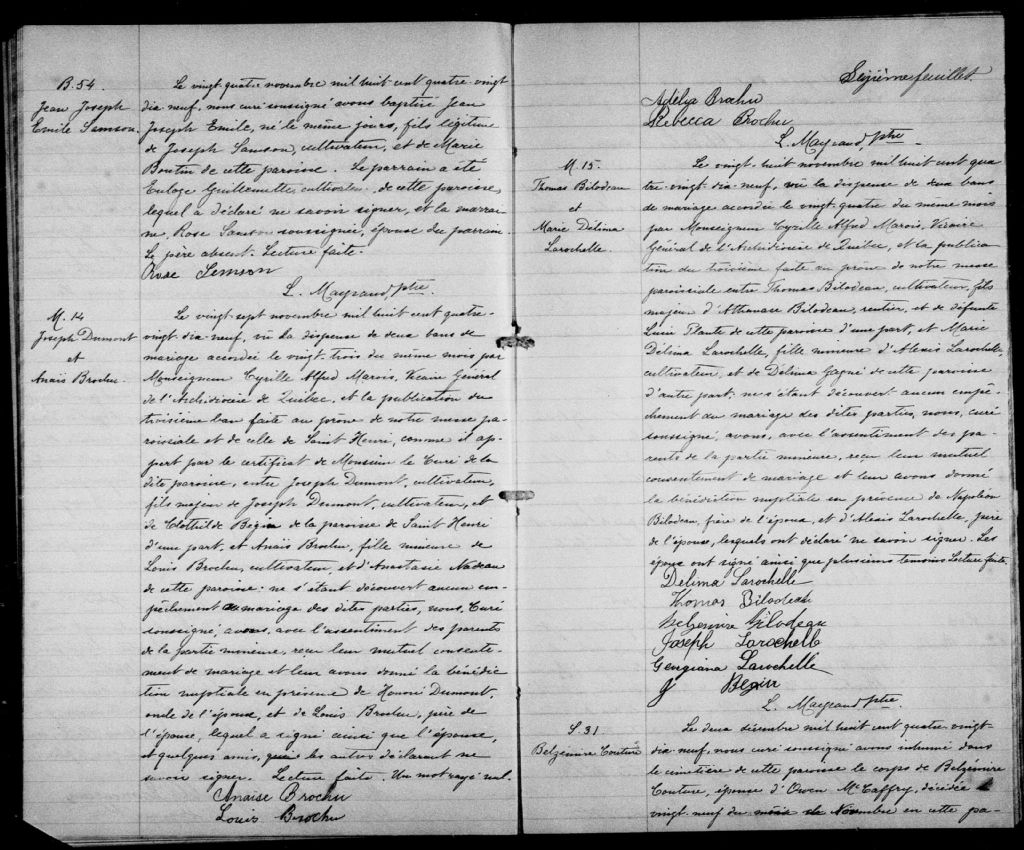 B. 54.
Jean Joseph
Emile Samson.
Le vingt quatre novembre mil huit cent quatre-vingt
dix-neuf, nous curé soussigné avons baptisé Jean
Joseph Emile, né le même jours, fils légitime
de Joseph Samson, cultivateur, et de Marie
Boutin de cette paroisse. Le parrain a été
Euloge Guillemette cultivateur de cette paroisse
lequel a déclaré ne savoir signer, et la marrai-
ne, Rose Samson soussignée, épouse du parrain.
Le père absent. Lecture faite.
Rose Samson
L. Mayrand, ptre.
M. 14
Joseph Dumont
et
Anaïs Brochu.
Le vingt sept novembre mil huit cent quatre-
vingt-dix-neuf, vu la dispense de deux bans de
mariage accordée le vingt-trois du même mois par
Monseigneur Cyrille Alfred Marois, Vicaire Général
de l'Archidiocèse de Québec, et la publication du
troisième ban faite au prône de notre messe pa-
roissiale et de celle de Saint Henri, comme il ap-
pert par le certificat de Monsieur le Curé de la
dite paroisse, entre Joseph Dumont, cultivateur,
fils majeur de Joseph Dumont, cultivateur, et
de Clothilde Bégin de la paroisse de Saint Henri
d'une part, et Anaïs Brochu, fille mineure de
Louis Brochu, cultivateur et d'Anastasie Nadeau
de cette paroisse: ne s'étant découvert aucun em-
pêchement au mariage des dites parties, nous, Curé
soussigné, avons, avec l'assentiment des parents
de la partie mineure, reçu leur mutuel consente-
ment de mariage et leur avons donné la bénédic-
tion nuptiale en présence de Honoré Dumont,
oncle de l'époux, et de Louis Brochu, père de
l'épouse, lequel a signé ainsi que l'épouse,
et quelques amis, les autres déclarant ne
savoir signer. Lecture faite. Un mot rayé nul.
Anaise Brochu
Louis Brochu
Seizième feuillet.
Adélia Brochu
Rebecca Brochu
L. Mayrand ptre
M. 15.
Thomas Bilodeau
et
Marie Délima
Larochelle
Le vingt-huit novembre mil huit cent qua
tre-vingt-dix-neuf, vu la dispense de deux bans
de mariage accordée le vingt quatre du même mois
par Monseigneur Cyrille Alfred Marois, Vicaire
Général de l'Archidiocèse de Québec, et la publica
tion du troisième faite au prône de notre messe
paroissiale entre Thomas Bilodeau, cultivateur, fils
majeur d'Athanase Bilodeau, rentier, et de défunte
Lucie Plante de cette paroisse d'une part, et Marie
Délima Larochelle, fille mineure d'Alexis Larochelle,
cultivateur, et de Délima Gagné de cette paroisse
d'autre part; ne s'étant découvert aucun empê-
chement au mariage des dites parties, nous, curé
soussigné, avons, avec l'assentiment des pa-
rents de la partie mineure, reçu leur mutuel
consentement de mariage et leur avons donné
la bénédiction nuptiale en présence de Napoléon
Bilodeau, frère de l'époux, et d'Alexis Larochelle, père
de l'épouse, lesquels ont déclaré ne savoir signer. Les
époux ont signé ainsi que plusieurs témoins Lecture faite.
Delima Larochelle
Thomas Bilodeau
Belzemire Bilodeau
Joseph Larochelle
Georgiana Larochelle
J Begin
L. Mayrand ptre.
S. 31.
Belzemire Couture
Le deux décembre mil huit cent quatre-vingt
dix-neuf, nous curé soussigné avons inhumé dans
le cimetière de cette paroisse le corps de Belzémire
Couture, épouse d'Owen McCaffry, décédée le
vingt-neuf du mois de Novembre en cette pa-